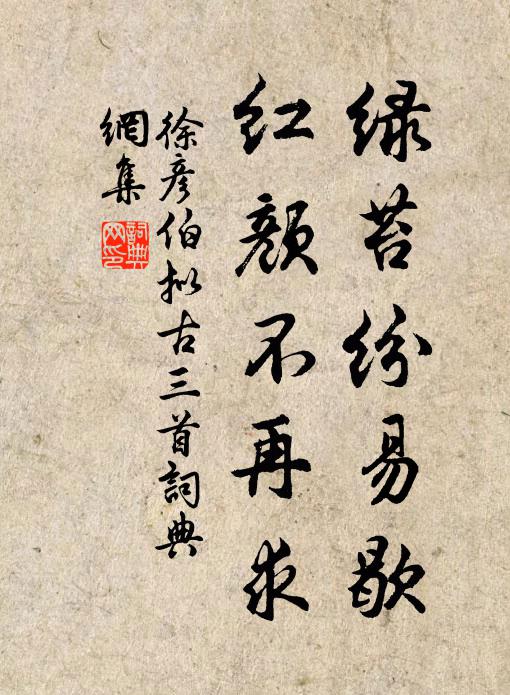 绿苔纷易歇
红颜不再求
徐彦伯拟古三首詞典
網集
詞典
网印